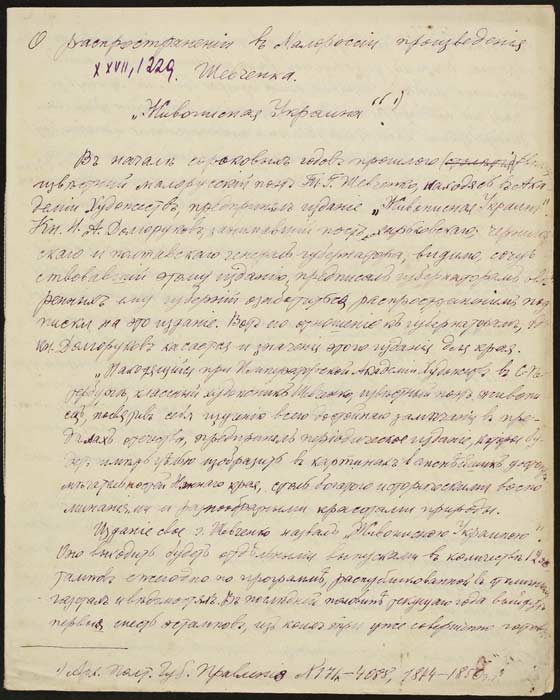 О распространеніи въ Малороссіи произведенія
XXVII, 1229. Шевченка.
„Живописная Украина“ ¹)
Въ началѣ сороковыхъ годовъ прошлого
извѣстный малорусскій поэтъ Т. Г. Шевченко, находясь въ Ака
деміи Художествъ, предпринялъ изданіе „Живописная Украина“
Кн. Н. А. Долгоруковъ, занимавшій постъ харьковскаго, чернигов
скаго и полтавскаго генералъ губернатора, видимо, сочув
ствовавшій этому изданію, предписалъ губернаторамъ вве
ренныхъ ему губерній озаботиться распространеніемъ под
писки на это изданіе. Вотъ его отношеніе къ губернаторамъ, гдѣ
кн. Долгоруковъ касается и значенія этого изданія для края.
„Находящійся при Императорской Академіи Художествъ въ С.-Пе
тербургѣ, классный художникъ Шевченко, извѣстный
посвятивъ себя изученію всего достойнаго замѣчанія въ пре
дѣлахъ отечества, предпринялъ періодическое изданіе, которое бу
детъ имѣть цѣлью изобразить въ картинахъ
Южнаго края, столь богатаго историческими воспо
минаніями и разнообразными красотами природы.
Изданіе свое г. Шевченко назвалъ „Живописною Украиною“.
Оно выходить будетъ отдѣльными выпусками въ количествѣ 12 эс
тамповъ ежегодно по программѣ, распубликованной въ столичныхъ
газетахъ и вѣдомостяхъ. Въ послѣдней половинѣ текущаго года выйдутъ
первые шесть эстамповъ, изъ коихъ три уже совершенно готовы
¹) Арх. Полт. Губ. Правленія № 174-4688, 1844-1850 г.